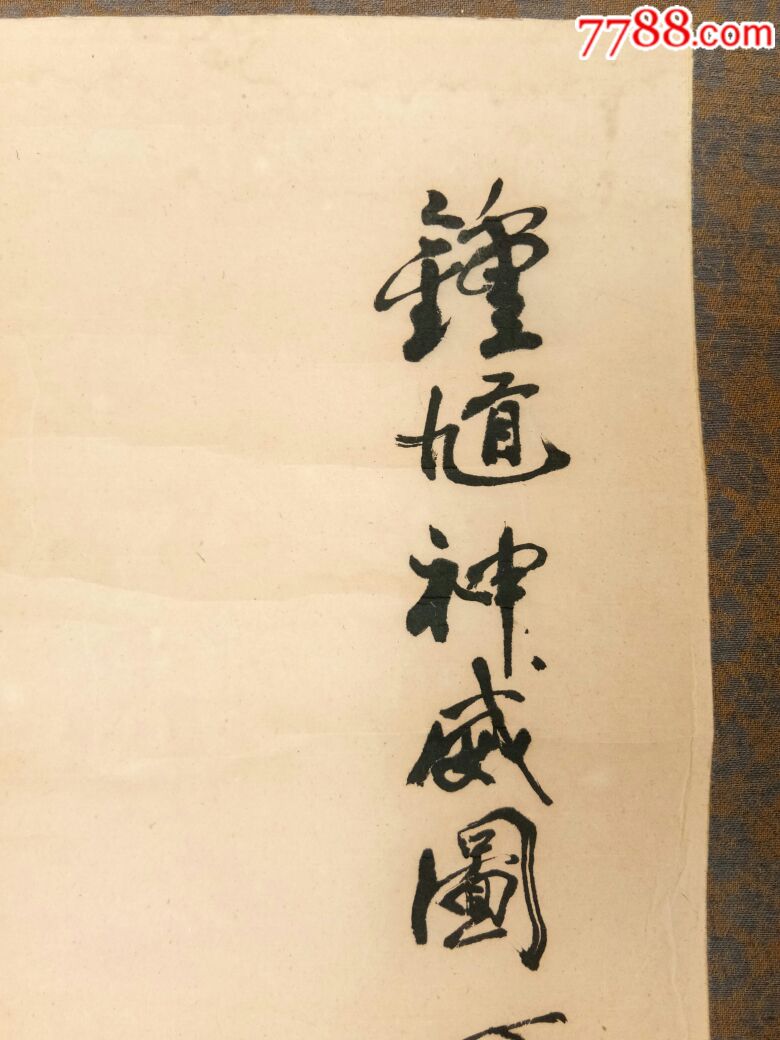 7788.com
鍾馗神威圖